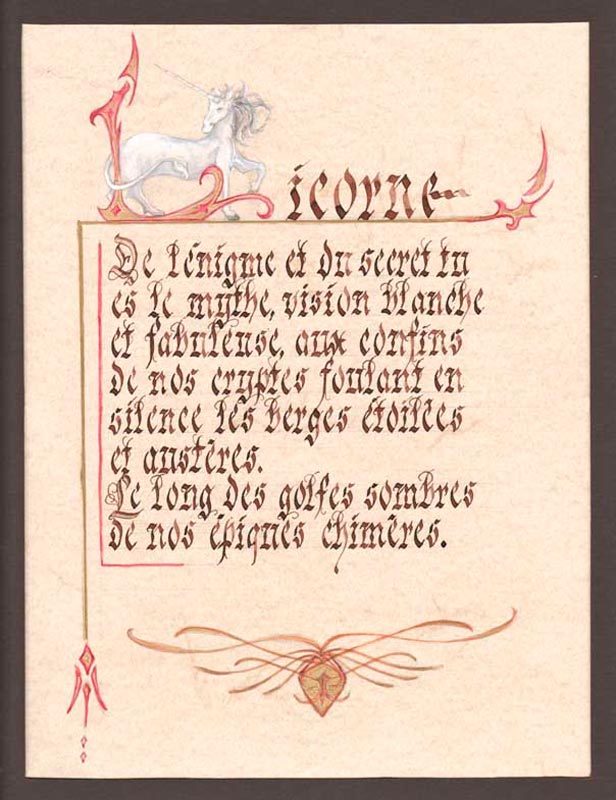 Licorne
De lénigme et du secret tu
es le mythe, vision blanche
et fabuleuse, aux confins
de nos cryptes foulant en
silence les berges étoilées
et austères.
Le long des golfes sombres
de nos épiques chimères.